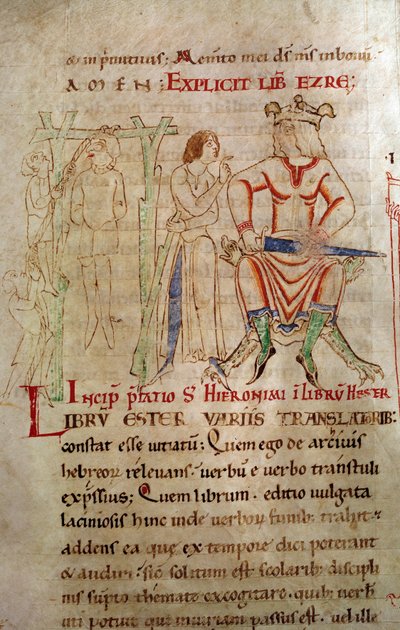 & in primitiuis; Memto mei dš mš in bonum.
AMEN: EXPLICIT LIB EZRE;
INCIP PFATIO S HIERONIMI I LIBRU HESTER
LIBRU ESTER VARIIS TRANSLATORIB:
constat esse uitiatu; Quem ego de archiuis
hebreoꝝ releuans. uerbu e uerbo transtuli
expssius; Quem librum. editio uulgata
laciniosis hinc inde uerboꝝ funib: trahit.
addens ea que ex tempore dici poterant
& audiri. sic solitum est scolarib: discipli
nis supto themate excogitare. quib: uerb
uti potuit qui iniuriam passus est. uel ille